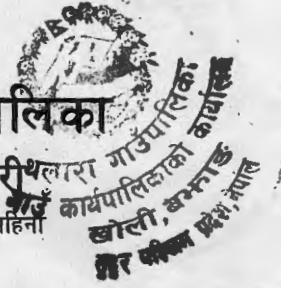 पालिका
थलारा गाउँपालिका
गाउँ कार्यपालिकाको कार्यालय
खोली, बझाङ
सुदूर पश्चिम प्रदेश, नेपाल